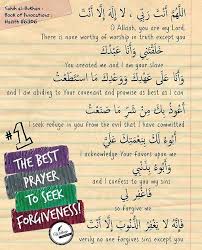 Sahih al-Bukhari -
Book of Invocations
Hadith 80:306
اللَّهُمَّ أَنْتَ رَبِّي ، لاَ إِلَهَ إِلاَّ أَنْتَ
O Allaah, you are my Lord,
There is none worthy of worship in truth except you
خَلَقْتَنِي وَأَنَا عَبْدُكَ
You created me and I am your slave
وَأَنَا عَلَى عَهْدِكَ وَوَعْدِكَ مَا اسْتَطَعْتُ
and I am abiding to your covenant and promise as best as I can
أَعُوذُ بِكَ مِنْ شَرِّ مَا صَنَعْتُ
I seek refuge in you from the evil that I have committed
أَبُوءُ لَكَ بِنِعْمَتِكَ عَلَيَّ
I acknowledge Your favors upon me
وَأَبُوءُ بِذَنْبِي
and I confess to you my sins
فَاغْفِرْ لِي
so forgive me
فَإِنَّهُ لاَ يَغْفِرُ الذُّنُوبَ إِلاَّ أَنْتَ
verily no one forgives sins except you
#1
THE BEST
PRAYER
TO SEEK
FORGIVENESS!